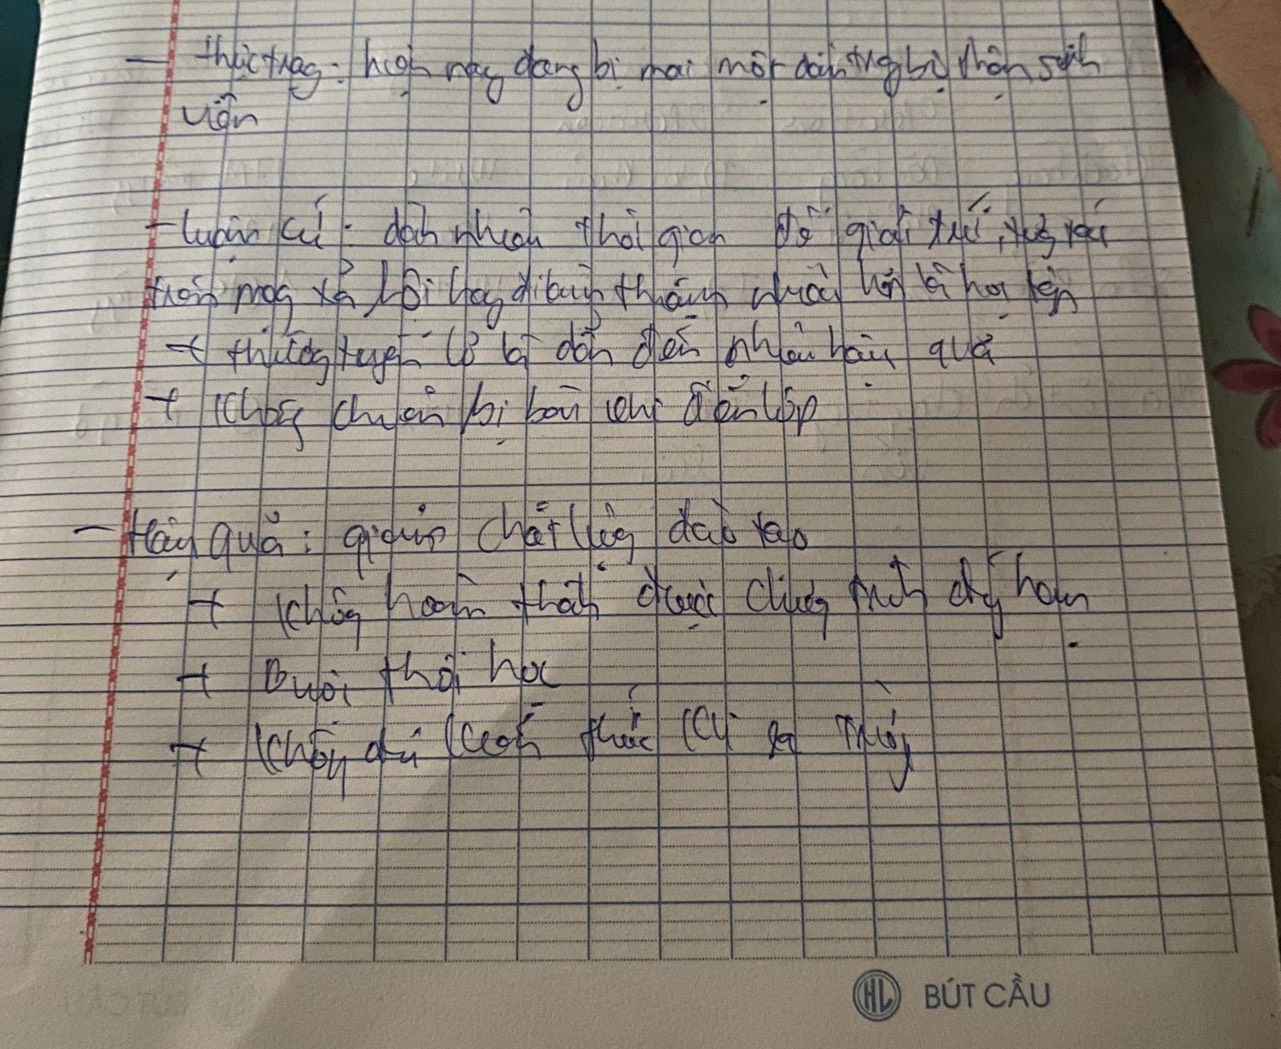 - thực trạng: hiện nay đang bị mai một dần trg bộ phận sinh
viên
+ luận cứ: dành nhiều thời gian để giải trí,
mạng xã hội hay đi thành nhiều hơn là học tập
+ thường xuyên dẫn đến nhiều hậu quả
+ không chuẩn bị bài khi đến lớp
- Hậu quả: giảm chất lượng đào tạo
+ không hoàn thành được chương trình đúng hạn
+ Buộc thôi học
+ không đủ kiến thức khi ra trường
HL BÚT CẦU